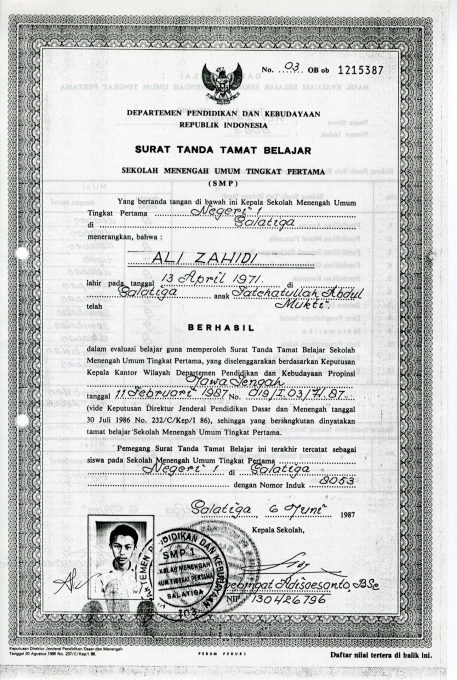 No. 03 OB ob 1215387
DEPARTEMEN PENDIDIKAN DAN KEBUDAYAAN
REPUBLIK INDONESIA
SURAT TANDA TAMAT BELAJAR
SEKOLAH MENENGAH UMUM TINGKAT PERTAMA
(SMP)
Yang bertanda tangan di bawah ini Kepala Sekolah Menengah Umum
Tingkat Pertama Negeri 1
di Salatiga
menerangkan, bahwa :
ALI ZAHIDI
lahir pada tanggal 13 April 1971. di
Salatiga anak Fatchatullah Abdul
telah Mukti.
BERHASIL
dalam evaluasi belajar guna memperoleh Surat Tanda Tamat Belajar Sekolah
Menengah Umum Tingkat Pertama, yang diselenggarakan berdasarkan Keputusan
Kepala Kantor Wilayah Departemen Pendidikan dan Kebudayaan Propinsi
Jawa Tengah
tanggal 11 Februari 1987 No. 019/I.03/H.87.
(vide Keputusan Direktur Jenderal Pendidikan Dasar dan Menengah tanggal
30 Juli 1986 No. 232/C/Kep/I 86), sehingga yang bersangkutan dinyatakan
tamat belajar Sekolah Menengah Umum Tingkat Pertama.
Pemegang Surat Tanda Tamat Belajar ini terakhir tercatat sebagai
siswa pada Sekolah Menengah Umum Tingkat Pertama
Negeri 1 di Salatiga
dengan Nomor Induk 8053
Salatiga 6 Juni 1987
Kepala Sekolah,
SMP 1
SEKOLAH MENENGAH
UMUM TINGKAT PERTAMA
SALATIGA
103
Adisoesanto, BSc
NIP 130426796
Keputusan Direktur Jenderal Pendidikan Dasar dan Menengah
Tanggal 20 Agustus 1986 No. 237/C/Kep/I 86.
PERUM PERURI
Daftar nilai tertera di balik ini.